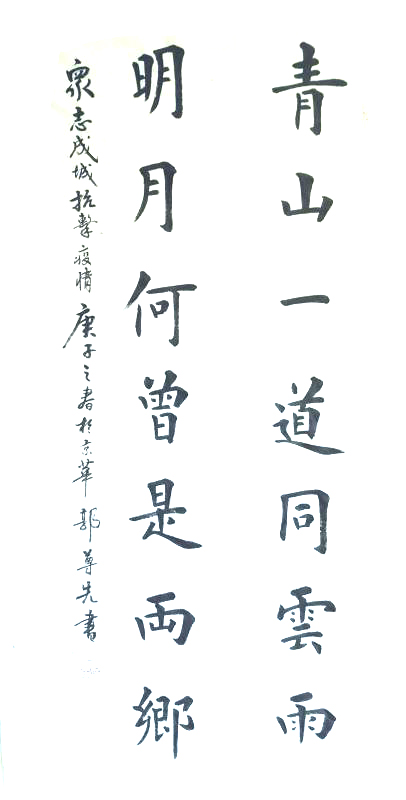 青山一道同雲雨
明月何曾是両鄉
衆志成城抗擊疫情庚子之春於京華郭尊先書